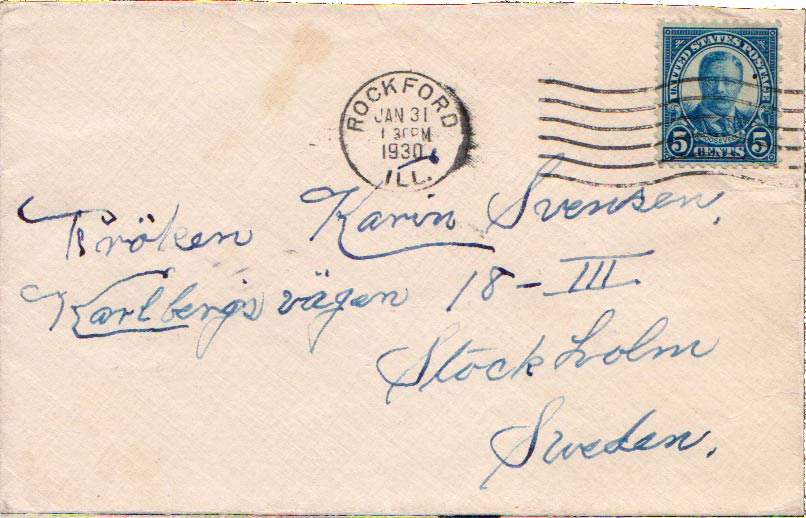 ROCKFORD
JAN 31
1 30PM
1930
ILL.
UNITED STATES POSTAGE
ROOSEVELT
5 CENTS 5
Fröken Karin Svensen.
Karlbergsvägen 18-III
Stockholm
Sweden.